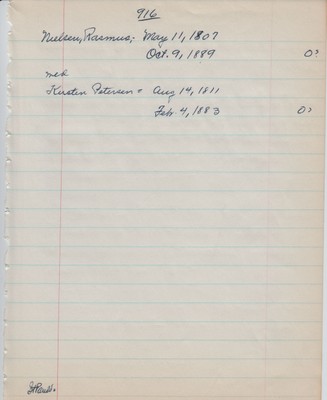 916
Nielsen, Rasmus,- May 11, 1807
Oct. 9, 1889 0?
meh
Kirsten Petersen = Aug 14, 1811
Feb. 4, 1883 0?
St Pauls.